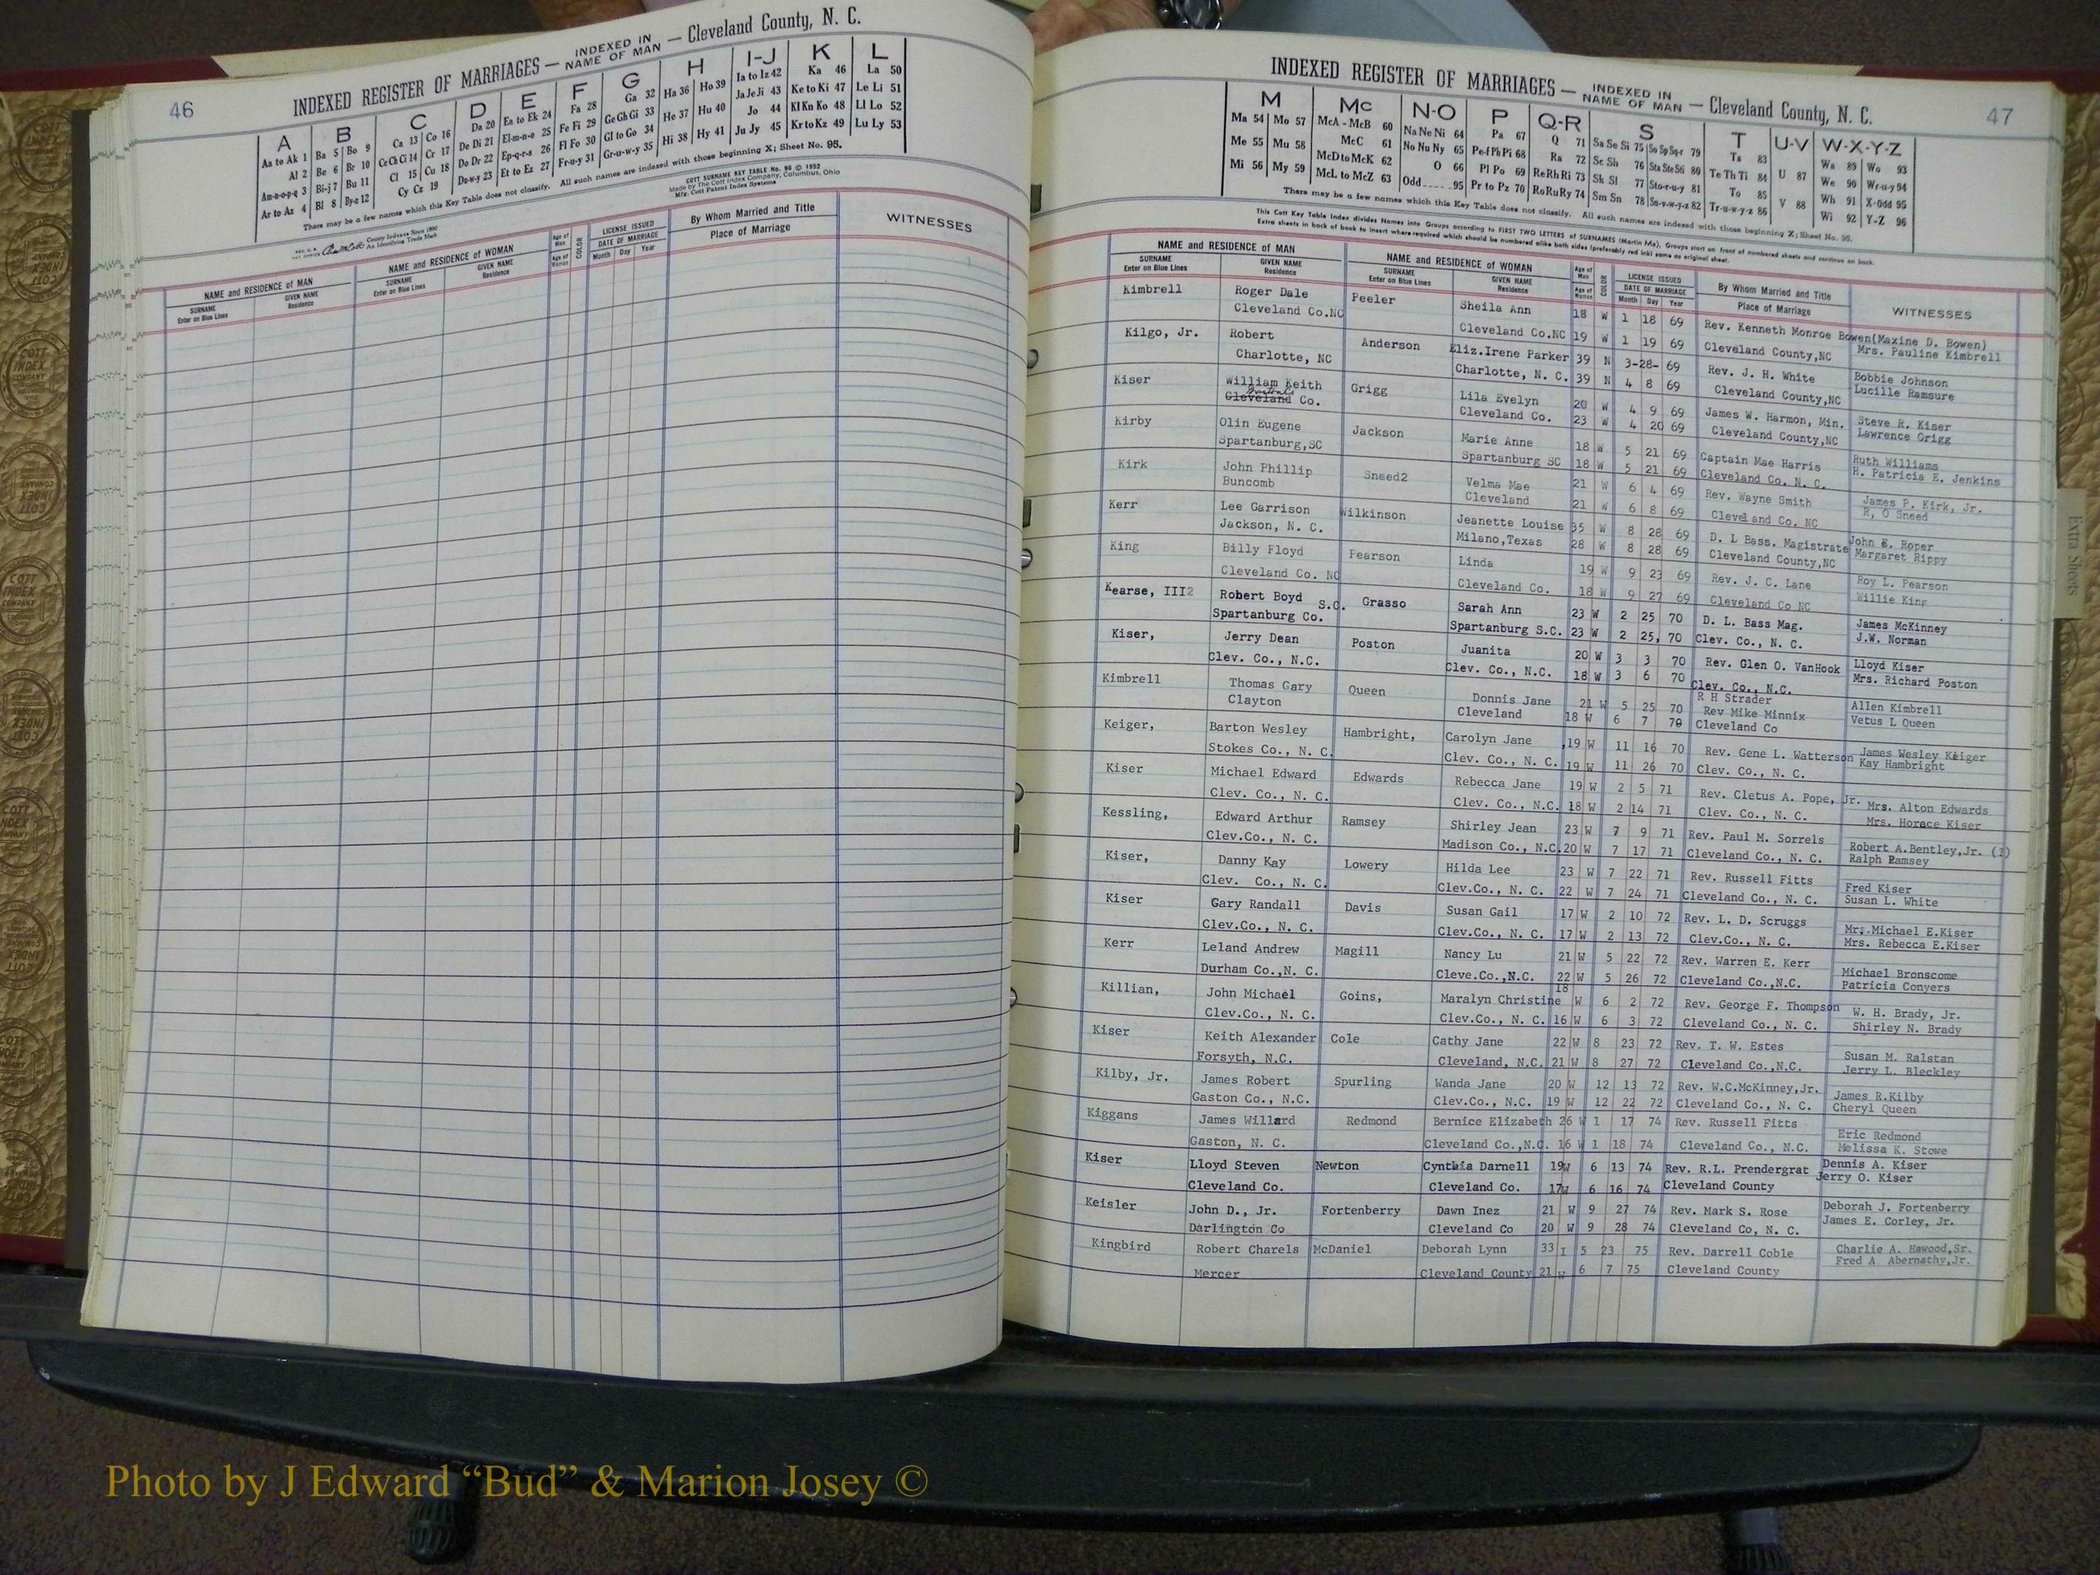 46
INDEXED REGISTER OF MARRIAGES — INDEXED IN NAME OF MAN — Cleveland County, N. C.
A B C D E F G H I-J K L
Aa to Ak 1 Ba 5 Bo 9 Ca 13 Co 16 Da 20 Ea to Ek 24 Fa 28 Ga 32 Ha 36 Ho 39 Ia to Iz 42 Ka 46 La 50
Al 2 Be 6 Br 10 Ce Ch Ci 14 Cr 17 De Di 21 El-m-n-o 25 Fe Fi 29 Ge Gh Gi 33 He 37 Hu 40 Ja Je Ji 43 Ke to Ki 47 Le Li 51
Am-n-o-p-q 3 Bi-j 7 Bu 11 Cl 15 Cu 18 Do Dr 22 Ep-q-r-s 26 Fl Fo 30 Gl to Go 34 Hi 38 Hy 41 Jo 44 Kl Kn Ko 48 Ll Lo 52
Ar to Az 4 Bl 8 By-z 12 Cy Cz 19 Du-w-y 23 Et to Ez 27 Fr-u-y 31 Gr-u-w-y 35 Ju Jy 45 Kr to Kz 49 Lu Ly 53
There may be a few names which this Key Table does not classify. All such names are indexed with those beginning X; Sheet No. 95.
COTT SURNAME KEY TABLE No. 90 © 1932
Made by The Cott Index Company, Columbus, Ohio
Mfr. Cott Patent Index Systems
County Indexes Since 1888
An Identifying Trade Mark
NAME and RESIDENCE OF MAN NAME and RESIDENCE OF WOMAN Age of Man Age of Woman COLOR LICENSE ISSUED DATE OF MARRIAGE By Whom Married and Title Place of Marriage WITNESSES
SURNAME Enter on Blue Lines GIVEN NAME Residence SURNAME Enter on Blue Lines GIVEN NAME Residence Month Day Year
INDEXED REGISTER OF MARRIAGES — INDEXED IN NAME OF MAN — Cleveland County, N. C.
47
M Mc N-O P Q-R S T U-V W-X-Y-Z
Ma 54 Mo 57 McA - McB 60 Na Ne Ni 64 Pa 67 Q 71 Sa Se Si 75 So Sp Sq-r 79 Ta 83 U 87 Wa 89 Wo 93
Me 55 Mu 58 McC 61 No Nu Ny 65 Pe-f Ph Pi 68 Ra 72 Sc Sh 76 Sta Ste Sti 80 Te Th Ti 84 We 90 Wr-u-y 94
Mi 56 My 59 McD to McK 62 O 66 Pl Po 69 Re Rh Ri 73 Sk Sl 77 Sto-r-u-y 81 To 85 V 88 Wh 91 X-Odd 95
McL to McZ 63 Odd 95 Pr to Pz 70 Ro Ru Ry 74 Sm Sn 78 Su-v-w-y-z 82 Tr-u-w-y-z 86 Wi 92 Y-Z 96
There may be a few names which this Key Table does not classify. All such names are indexed with those beginning X; Sheet No. 95.
This Cott Key Table Index divides Names into Groups according to FIRST TWO LETTERS of SURNAMES (Martin Ma), Groups start on front of numbered sheets and continue on back.
Extra sheets in back of book to insert where required which should be numbered alike both sides (preferably red ink) same as original sheet.
NAME and RESIDENCE OF MAN NAME and RESIDENCE OF WOMAN Age of Man Age of Woman COLOR LICENSE ISSUED DATE OF MARRIAGE By Whom Married and Title Place of Marriage WITNESSES
SURNAME Enter on Blue Lines GIVEN NAME Residence SURNAME Enter on Blue Lines GIVEN NAME Residence Month Day Year
Kimbrell Roger Dale Peeler Sheila Ann 18 W 1 18 69 Rev. Kenneth Monroe Bowen (Maxine D. Bowen)
Cleveland Co.NC Cleveland Co.NC 19 W 1 19 69 Cleveland County,NC Mrs. Pauline Kimbrell
Kilgo, Jr. Robert Anderson Eliz.Irene Parker 39 N 3-28- 69 Rev. J. H. White Bobbie Johnson
Charlotte, NC Charlotte, N. C. 39 N 4 8 69 Cleveland County,NC Lucille Ramsure
Kiser William Keith Grigg Lila Evelyn 20 W 4 9 69 James W. Harmon, Min. Steve R. Kiser
Cleveland Co. Cleveland Co. 23 W 4 20 69 Cleveland County,NC Lawrence Grigg
Kirby Olin Eugene Jackson Marie Anne 18 W 5 21 69 Captain Mae Harris Ruth Williams
Spartanburg,SC Spartanburg SC 18 W 5 21 69 Cleveland Co. N. C. H. Patricia E. Jenkins
Kirk John Phillip Sneed2 Velma Mae 21 W 6 4 69 Rev. Wayne Smith James P. Kirk, Jr.
Buncomb Cleveland 21 W 6 8 69 Cleveland Co. NC R, O Sneed
Kerr Lee Garrison Wilkinson Jeanette Louise 35 W 8 28 69 D. L Bass. Magistrate John E. Roper
Jackson, N. C. Milano,Texas 28 W 8 28 69 Cleveland County,NC Margaret Rippy
King Billy Floyd Pearson Linda 19 W 9 23 69 Rev. J. C. Lane Roy L. Pearson
Cleveland Co. NC Cleveland Co. 18 W 9 27 69 Cleveland Co NC Willie King
Kearse, III2 Robert Boyd Grasso Sarah Ann 23 W 2 25 70 D. L. Bass Mag. James McKinney
Spartanburg Co. S.C. Spartanburg S.C. 23 W 2 25, 70 Clev. Co., N. C. J.W. Norman
Kiser, Jerry Dean Poston Juanita 20 W 3 3 70 Rev. Glen O. VanHook Lloyd Kiser
Clev. Co., N.C. Clev. Co., N.C. 18 W 3 6 70 Clev. Co., N.C. Mrs. Richard Poston
R H Strader
Kimbrell Thomas Gary Queen Donnis Jane 21 W 5 25 70 Rev Mike Minnix Allen Kimbrell
Clayton Cleveland 18 W 6 7 70 Cleveland Co Vetus L Queen
Keiger, Barton Wesley Hambright, Carolyn Jane 19 W 11 16 70 Rev. Gene L. Watterson James Wesley Keiger
Stokes Co., N. C. Clev. Co., N. C. 19 W 11 26 70 Clev. Co., N. C. Kay Hambright
Kiser Michael Edward Edwards Rebecca Jane 19 W 2 5 71 Rev. Cletus A. Pope, Jr. Mrs. Alton Edwards
Clev. Co., N. C. Clev. Co., N.C. 18 W 2 14 71 Clev. Co., N. C. Mrs. Horace Kiser
Kessling, Edward Arthur Ramsey Shirley Jean 23 W 7 9 71 Rev. Paul M. Sorrels Robert A.Bentley,Jr. (?)
Clev.Co., N. C. Madison Co., N.C. 20 W 7 17 71 Cleveland Co., N. C. Ralph Ramsey
Kiser, Danny Kay Lowery Hilda Lee 23 W 7 22 71 Rev. Russell Fitts Fred Kiser
Clev. Co., N. C. Clev.Co., N. C. 22 W 7 24 71 Cleveland Co., N. C. Susan L. White
Kiser Gary Randall Davis Susan Gail 17 W 2 10 72 Rev. L. D. Scruggs Mrs.Michael E.Kiser
Clev.Co., N. C. Clev.Co., N. C. 17 W 2 13 72 Clev.Co., N. C. Mrs. Rebecca E.Kiser
Kerr Leland Andrew Magill Nancy Lu 21 W 5 22 72 Rev. Warren E. Kerr Michael Bronscome
Durham Co.,N. C. Cleve.Co.,N.C. 22 W 5 26 72 Cleveland Co.,N.C. Patricia Conyers
Killian, John Michael Goins, Maralyn Christine 18 W 6 2 72 Rev. George F. Thompson W. H. Brady, Jr.
Clev.Co., N. C. Clev.Co., N. C. 16 W 6 3 72 Cleveland Co., N. C. Shirley N. Brady
Kiser Keith Alexander Cole Cathy Jane 22 W 8 23 72 Rev. T. W. Estes Susan M. Ralstan
Forsyth, N.C. Cleveland, N.C. 21 W 8 27 72 Cleveland Co.,N.C. Jerry L. Bleckley
Kilby, Jr. James Robert Spurling Wanda Jane 20 W 12 13 72 Rev. W.C.McKinney,Jr. James R.Kilby
Gaston Co., N.C. Clev.Co., N.C. 19 W 12 22 72 Cleveland Co., N. C. Cheryl Queen
Kiggans James Willard Redmond Bernice Elizabeth 26 W 1 17 74 Rev. Russell Fitts Eric Redmond
Gaston, N. C. Cleveland Co.,N.C. 16 W 1 18 74 Cleveland Co., N.C. Melissa K. Stowe
Kiser Lloyd Steven Newton Cynthia Darnell 19W 6 13 74 Rev. R.L. Prendergrat Dennis A. Kiser
Cleveland Co. Cleveland Co. 17W 6 16 74 Cleveland County Jerry O. Kiser
Keisler John D., Jr. Fortenberry Dawn Inez 21 W 9 27 74 Rev. Mark S. Rose Deborah J. Fortenberry
Darlington Co Cleveland Co 20 W 9 28 74 Cleveland Co, N. C. James E. Corley, Jr.
Kingbird Robert Charels McDaniel Deborah Lynn 33 I 5 23 75 Rev. Darrell Coble Charlie A. Hawood,Sr.
Mercer Cleveland County 21 W 6 7 75 Cleveland County Fred A Abernathy,Jr.
Extra Sheets
Photo by J Edward “Bud” & Marion Josey ©